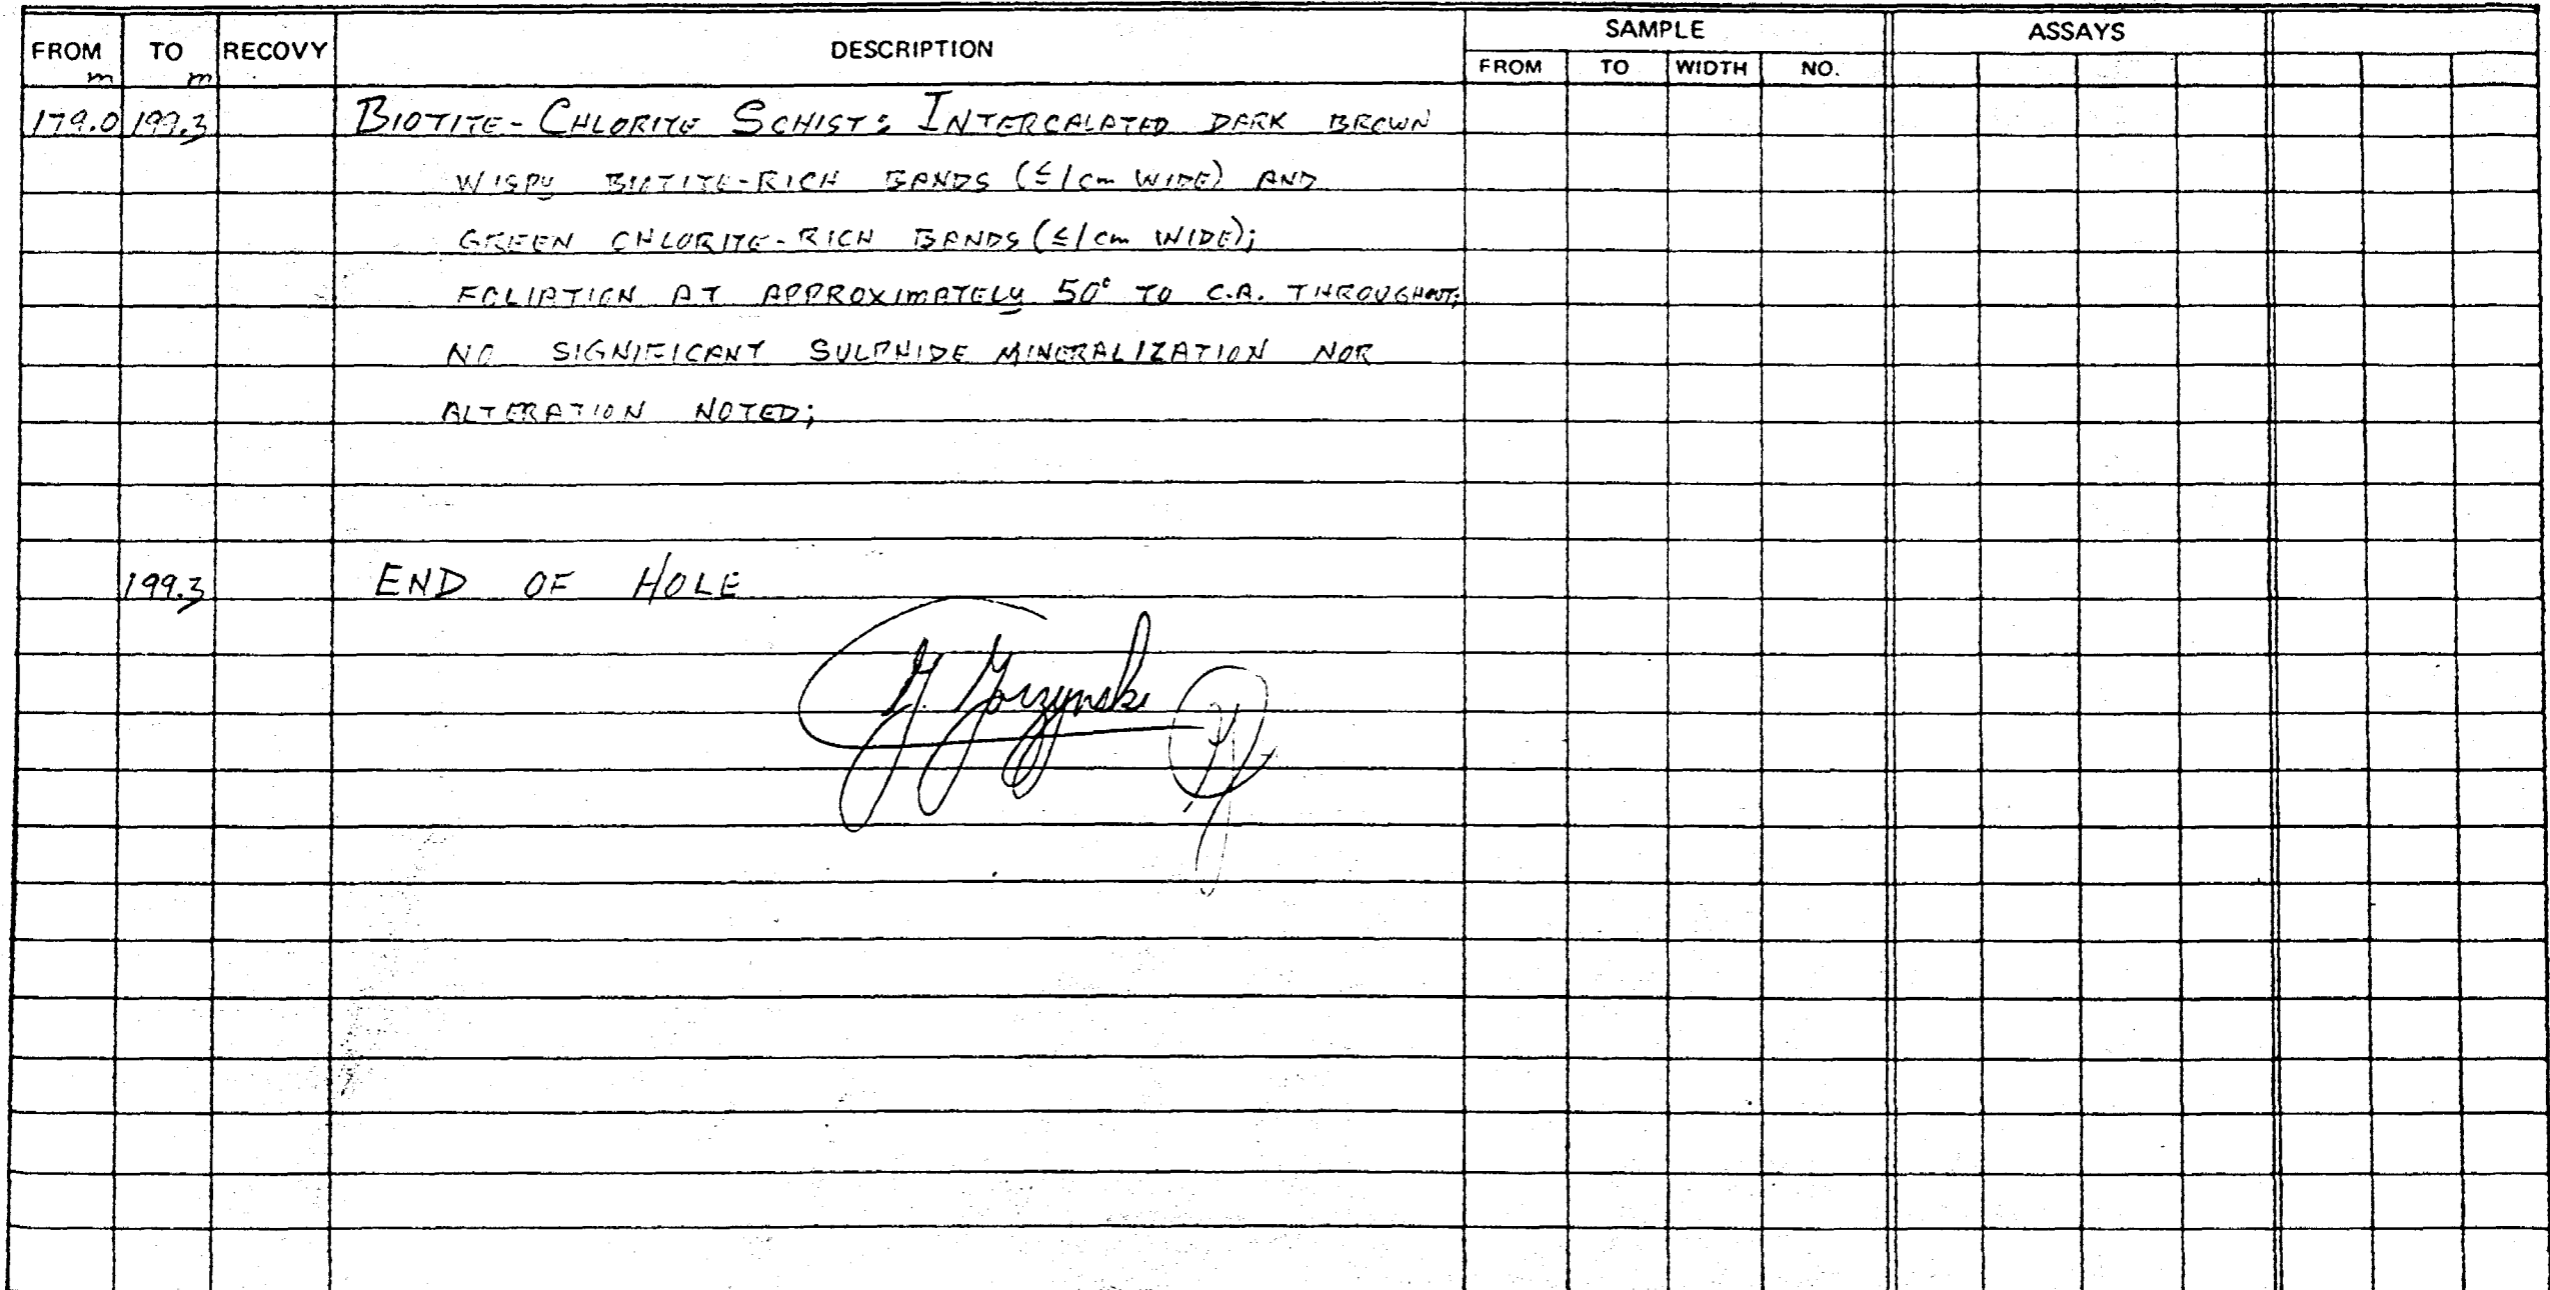 FROM TO RECOVY DESCRIPTION SAMPLE ASSAYS
m m FROM TO WIDTH NO.
179.0 199.3 BIOTITE-CHLORITE SCHIST: INTERCALATED DARK BROWN
WISPY BIOTITE-RICH BANDS (≤1cm WIDE) AND
GREEN CHLORITE-RICH BANDS (≤1cm WIDE);
FOLIATION AT APPROXIMATELY 50° TO C.A. THROUGHOUT;
NO SIGNIFICANT SULPHIDE MINERALIZATION NOR
ALTERATION NOTED;
199.3 END OF HOLE